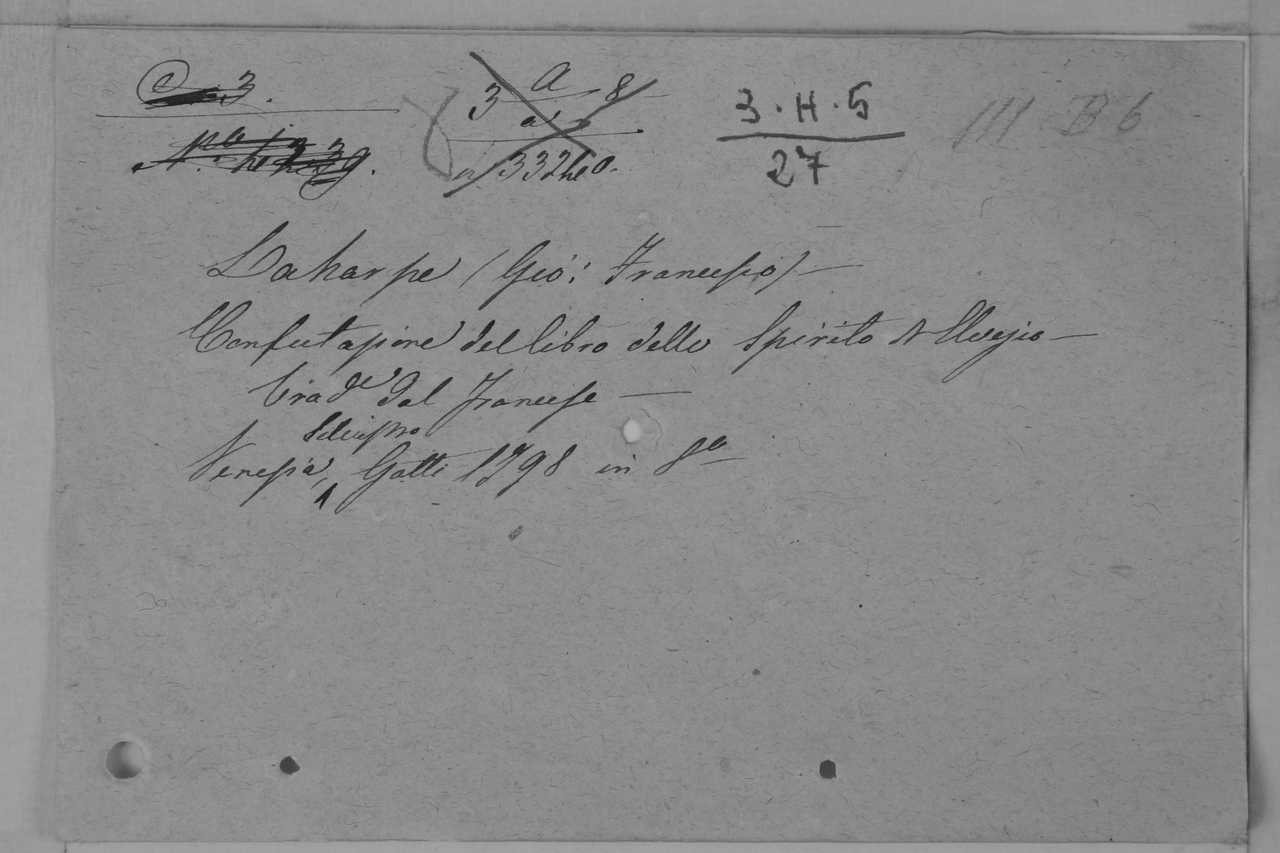 3.
3 A 8
3·H·5
27
III B 6
Laharpe (Gió: Francesco) —
Confutazione del libro dello Spirito d'Elvezio —
trad.e dal Francese —
Venezia, Gatti 1798 in 8o